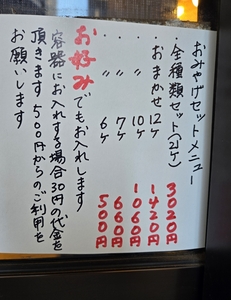 おみやげセットメニュー
全種類セット(21ケ) 3020円
おまかせ12ケ 1420円
〃 10ケ 1060円
〃 7ケ 660円
〃 6ケ 500円
お好みでもお入れします
容器にお入れする場合30円の代金を
頂きます 500円からのご利用を
お願いします